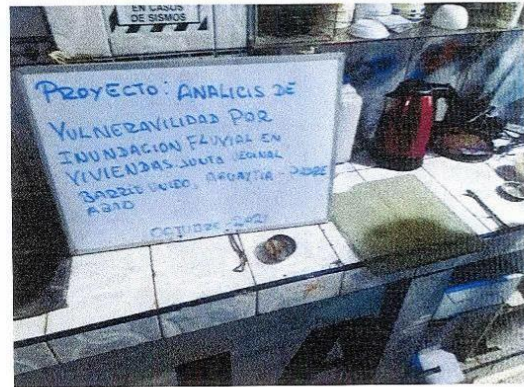 EN CASOS
DE SISMOS
PROYECTO: ANALICIS DE
VULNERAVILIDAD POR
INUNDACION FLUVIAL EN
VIVIENDAS JUNTA VECINAL
BARRIO UNIDO, AGUAYTIA - PADRE
ABAD
OCTUBRE - 2021